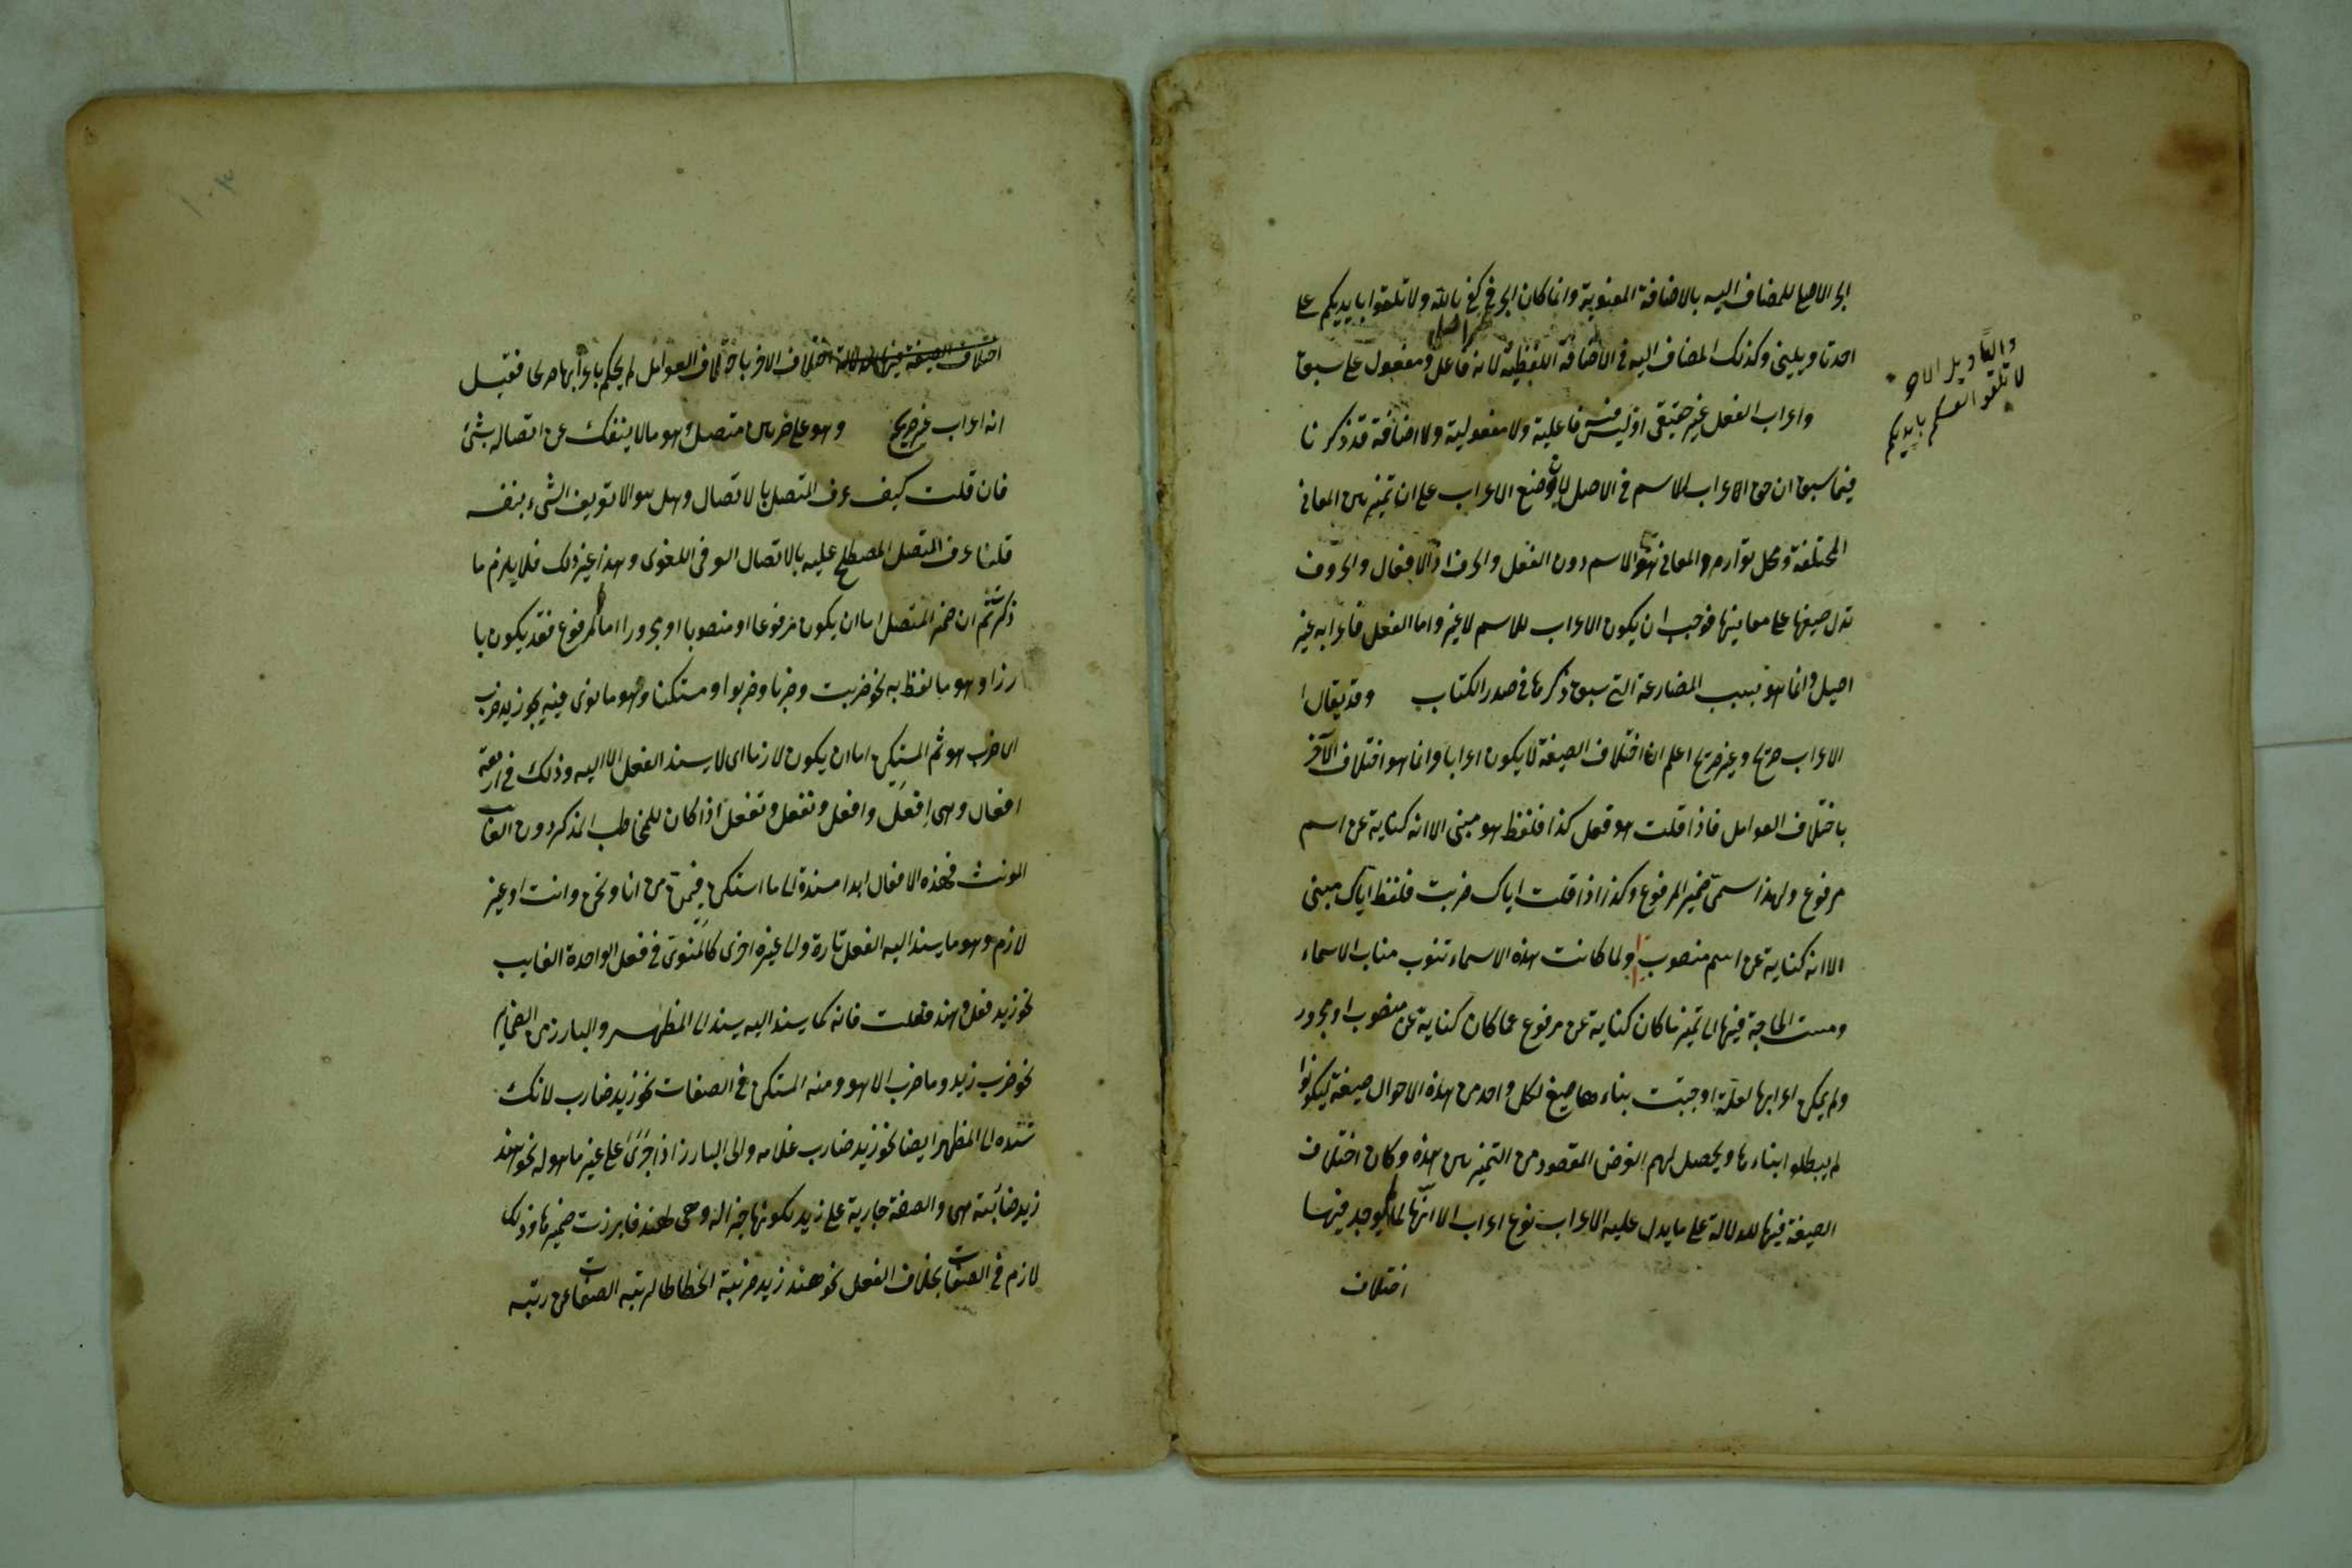 الجر الاصلي للمضاف اليه بالاضافة المعنوية وانما كان الجر في كفى بالله ولا تلقوا بايديكم على
احد تاويلين وكذلك المضاف اليه في الاضافة اللفظية لانه فاعل او مفعول على ما سبق
واعراب الفعل غير حقيقي اذ ليس فيه فاعلية ولا مفعولية ولا اضافة قد ذكرنا
فيما سبق ان حق الاعراب للاسم في الاصل لان وضع الاعراب على ان تميز بين المعاني
المختلفة ومحل توارد المعاني هو الاسم دون الفعل والحرف اذ الافعال والحروف
تدل صيغها على معانيها فوجب ان يكون الاعراب للاسم لا غير واما الفعل فاعرابه غير
اصيل وانما هو بسبب المضارعة التي سبق ذكرها في صدر الكتاب وقد يقال
الاعراب صريح وغير صريح اعلم ان اختلاف الصيغة لا يكون اعرابا وانما هو اختلاف الآخر
باختلاف العوامل فاذا قلت هو فعل كذا فلفظ هو مبني الا انه كناية عن اسم
مرفوع ولهذا سمى ضمير المرفوع وكذا اذا قلت اياك ضربت فلفظ اياك مبني
الا انه كناية عن اسم منصوب ولما كانت هذه الاسماء تنوب مناب الاسماء
ومست الحاجة فيها الى تميز ما كان كناية عن مرفوع عما كان كناية عن منصوب او مجرور
ولم يمكن اعرابها لعلة اوجبت بناءها صيغ لكل واحد من هذه الاحوال صيغة ليكونوا
لم يبطلوا بناءها ويحصل لهم الغرض المقصود من التميز بين هذه وكان اختلاف
الصيغة فيها للدلالة على ما يدل عليه الاعراب نوع اعراب الا انها لما لم يوجد فيها
اختلاف
والتاويل الاخر
لا تلقوا انفسكم بايديكم
اختلاف الآخر باختلاف العوامل لم يحكم باعرابها صريحا فقيل
انه اعراب غير صريح وهو على ضربين متصل وهو ما لا ينفك عن اتصاله بشئ
فان قلت كيف عرف المتصل بالاتصال وهل هو الا تعريف الشيء بنفسه
قلنا عرف المتصل المصطلح عليه بالاتصال العرفي اللغوي وهذا غير ذلك فلا يلزم ما
ذكرته ثم ان ضمير المتصل اما ان يكون مرفوعا او منصوبا او مجرورا اما المرفوع فقد يكون با
رزا وهو ما لفظ به نحو ضربت وضربا وضربوا او مستكنا وهو ما نوى فيه نحو زيد ضرب
اي ضرب هو ثم المستكن اما ان يكون لازما اي لا يسند الفعل الا اليه وذلك في اربعة
افعال وهي افعل وافعل ونفعل وتفعل اذا كان للمخاطب المذكر دون الغائب
المونث فهذه الافعال ابدا مسندة الى ما استكن فيهن من انا ونحن وانت او غير
لازم وهو ما يسند اليه الفعل تارة والى غيره اخرى كالمنوي في فعل الواحدة الغايب
نحو زيد فعل وهند فعلت فانه كما يسند اليه يسند الى المظهر والبارز من الضمائر
نحو ضرب زيد وما ضرب الا هو ومنه المستكن في الصفات نحو زيد ضارب لانك
تسنده الى المظهر ايضا نحو زيد ضارب غلامه والى البارز اذا جرى على غير ما هو له نحو هند
زيد ضاربته هي والصفة جارية على زيد لكونها خبرا له وهي لهند فابرزت ضميرها وذلك
لازم في الصفات بخلاف الفعل نحو هند زيد ضربته انحطاطا لرتبة الصفات عن رتبه